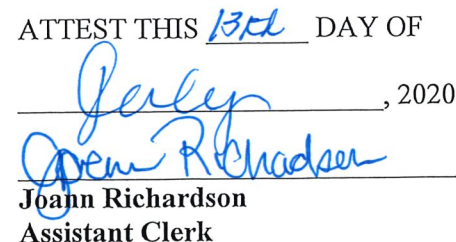 ATTEST THIS 13th DAY OF
July, 2020
Joann Richardson
Joann Richardson
Assistant Clerk